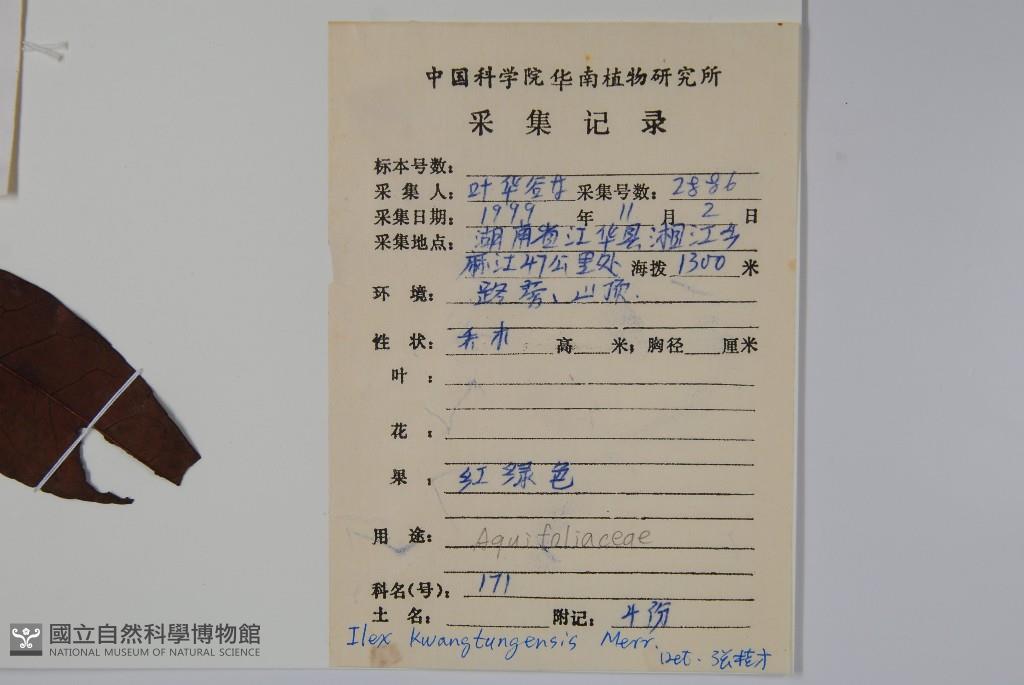 中国科学院华南植物研究所
采集记录
标本号数:
采集人: 叶华谷 采集号数: 2886
采集日期: 1999 年 11 月 2 日
采集地点: 湖南省江华县湘江乡
麻江47公里处 海拨 1300 米
环境: 路旁、山顶.
性状: 乔木 高 米; 胸径 厘米
叶:
花:
果: 红绿色
用途: Aquifoliaceae
科名(号): 171
土名: 附记: 4份
Ilex Kwangtungensis Merr.
Det. 张桂才
國立自然科學博物館
NATIONAL MUSEUM OF NATURAL SCIENCE